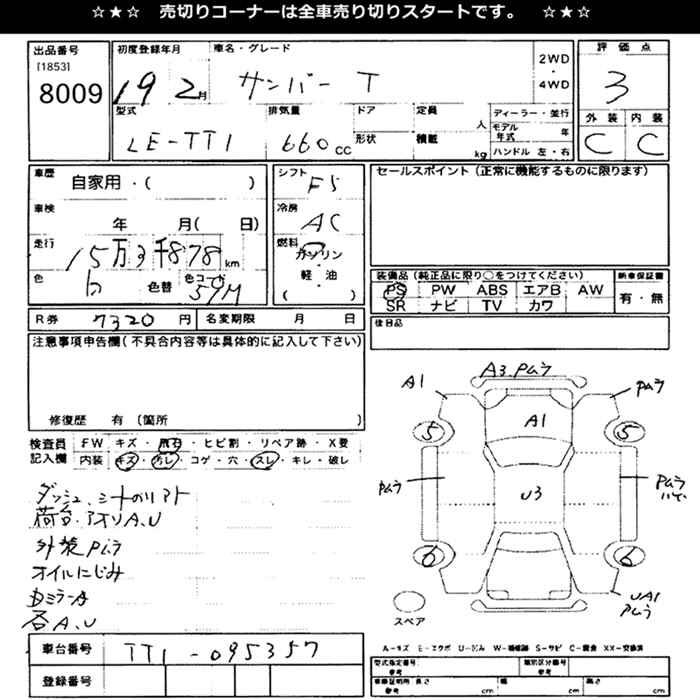 ☆★☆ 売切りコーナーは全車売り切りスタートです。 ☆★☆
出品番号 初度登録年月 車名・グレード 評価点
[1853]
8009
19 2月 サンバー T 2WD ・ 4WD 3
型式 排気量 ドア 定員 人 ディーラー・並行 外装 内装
LE-TT1 660cc 形状 積載 kg モデル年式 年 C C
ハンドル 左・右
車歴 自家用・( ) シフト F5 セールスポイント(正常に機能するものに限ります)
車検 年 月( 日) 冷房 AC
走行 15万3千878km 燃料 ガソリン
軽・油
( )
色 白 色替 色コード 51M
装備品(純正品に限り○をつけてください) 新車保証書
PS PW ABS エアB AW 有・無
SR ナビ TV カワ
R券 7320円 名変期限 月 日 後日品
注意事項申告欄(不具合内容等は具体的に記入して下さい)
修復歴 有(箇所 )
検査員記入欄 FW キズ・飛石・ヒビ割・リペア跡・X要
内装 キズ・汚レ・コゲ・穴・スレ・キレ・破レ
ダッシュ.シートのリアト
荷台.アオリA.U
外装Pムラ
オイルにじみ
各A.U
A1 A3.Pムラ Pムラ
A1
5 5
Pムラ U3 Pムラ
6 6
UA1
Pムラ
スペア
A-キズ E-エクボ U-凹ミ W-補修跡 S-サビ C-腐食 XX-交換済
車台番号 TT1-095357
登録番号
型式指定番号 類別区分番号
参考 参考
車検証明用 長さ 幅 高さ
参考 cm cm cm